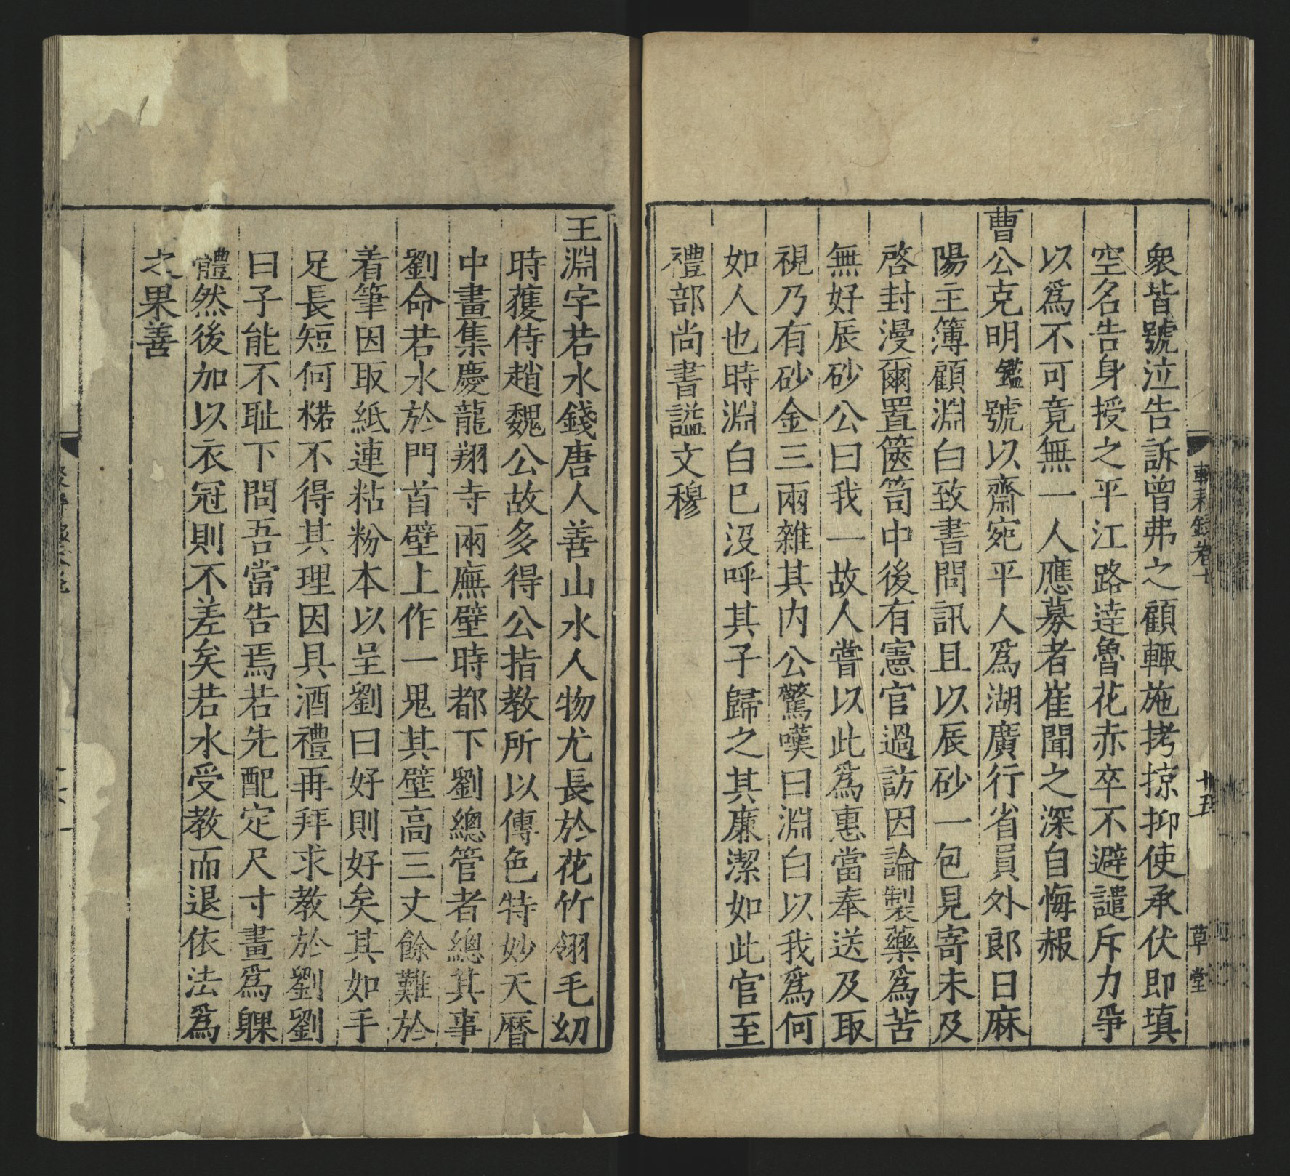 衆皆號泣告訴曾弗之顧輙施拷掠抑使承伏即填
空名告身授之平江路逹魯花赤卒不避譴斥力爭
以爲不可竟無一人應募者崔聞之深自悔赧
曹公克明鑑號以齋宛平人爲湖廣行省員外郎日麻
陽主簿顧淵白致書問訊且以辰砂一包見寄未及
啓封漫爾置篋笥中後有憲官過訪因論製藥爲苦
無好辰砂公曰我一故人嘗以此爲惠當奉送及取
視乃有砂金三兩雜其内公驚嘆曰淵白以我爲何
如人也時淵白巳没呼其子歸之其廉潔如此官至
禮部尚書謚文穆
輟耕錄卷十
廿五
草堂
王淵字若水錢唐人善山水人物尤長於花竹翎毛幼
時獲侍趙魏公故多得公指教所以傳色特妙天曆
中畫集慶龍翔寺兩廡壁時都下劉總管者總其事
劉命若水於門首壁上作一鬼其壁高三丈餘難於
着筆因取紙連粘粉本以呈劉曰好則好矣其如手
足長短何楉不得其理因具酒禮再拜求教於劉劉
曰子能不耻下問吾當告焉若先配定尺寸畫爲躶
體然後加以衣冠則不差矣若水受教而退依法爲
之果善